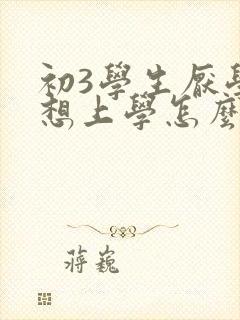 初3學生厭學
想上學怎麼
蔣巍